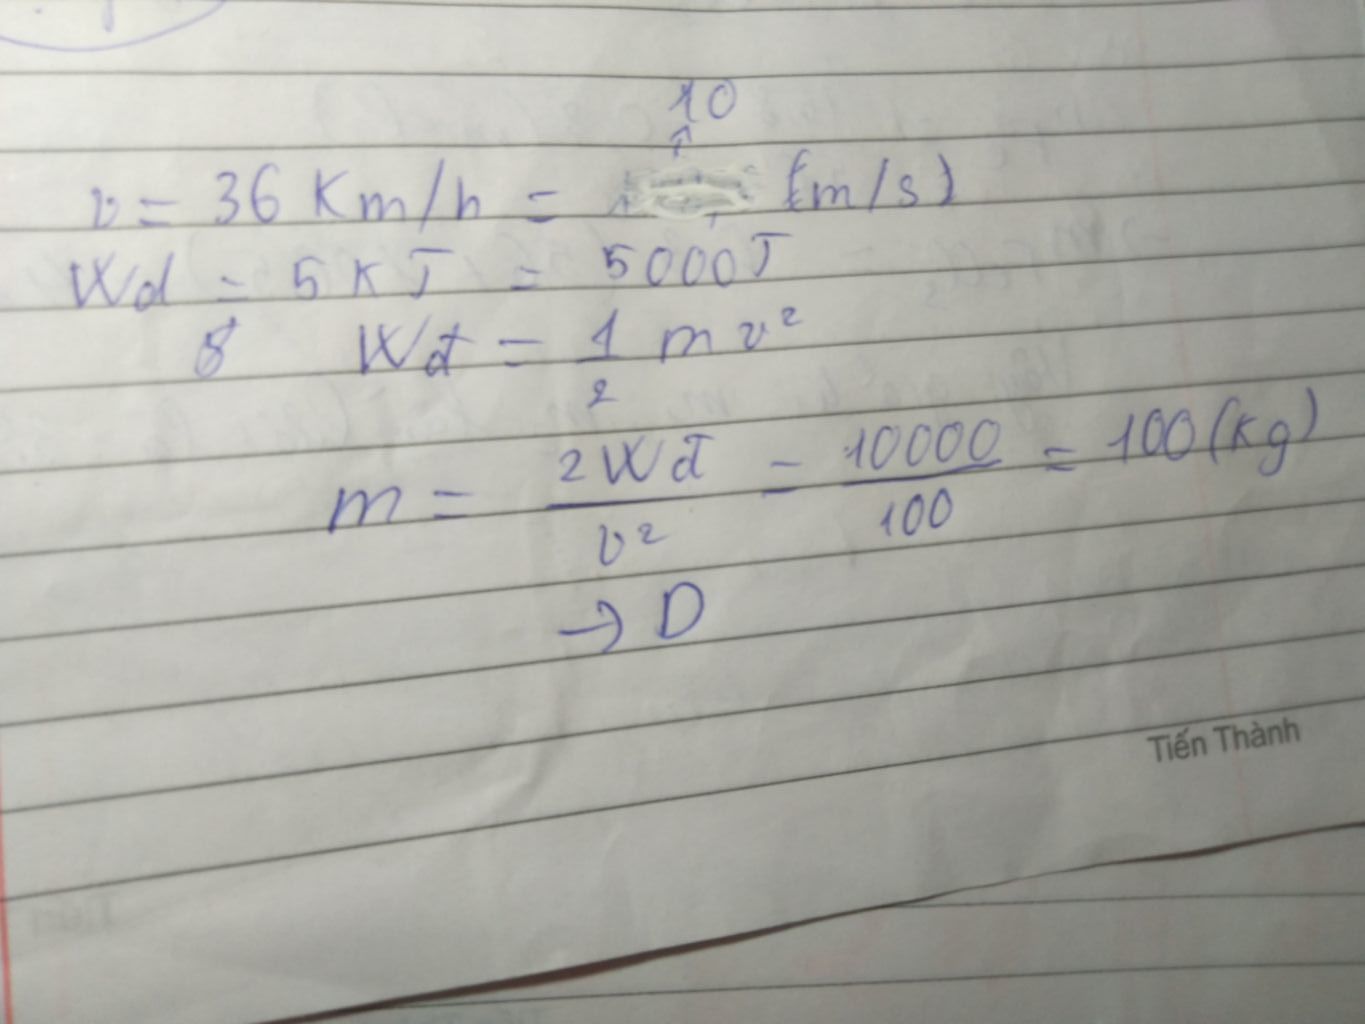 10
↑
v = 36 Km/h = (m/s)
Wd = 5 KJ = 5000J
Wđ = 1/2 m v²
m = 2Wđ/v² = 10000/100 = 100 (kg)
→ D
Tiến Thành